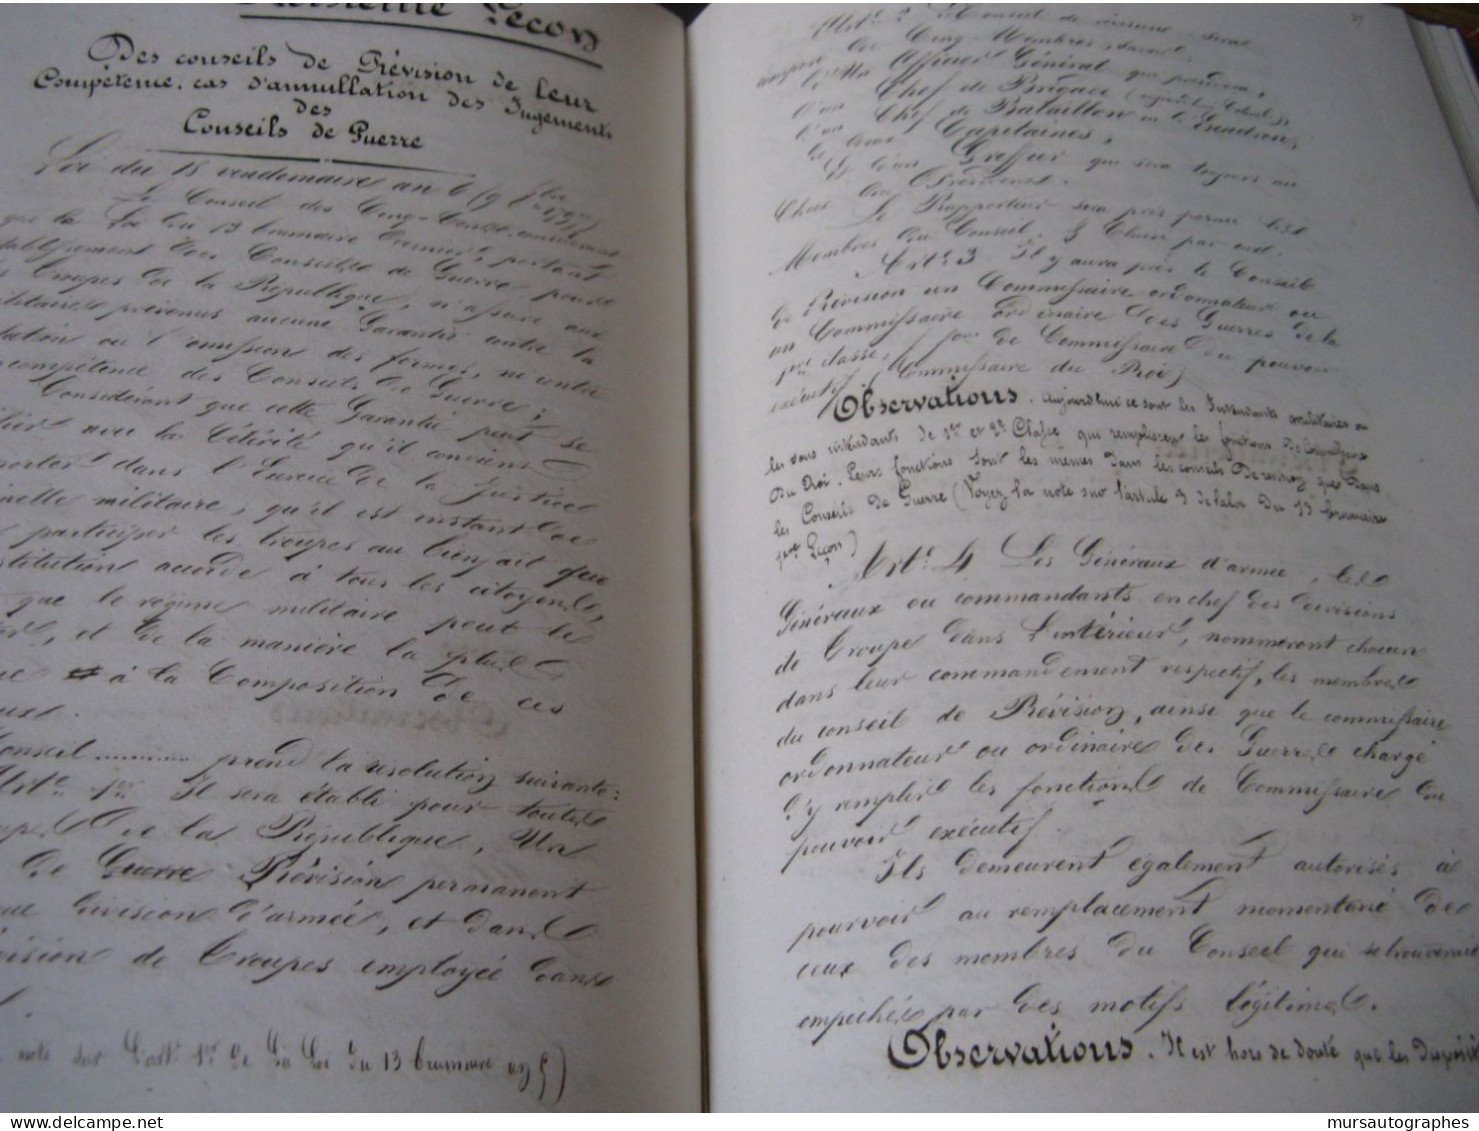 Leçon
Des conseils de Révision de leur
Compétence, cas d'annullation des Jugements
des
Conseils de Guerre
Loi du 18 vendemiaire an 6
Le Conseil des Cinq-Cents, considérant
que la Loi du 13 brumaire dernier, portant
établissement des Conseils de Guerre pour
les troupes de la République, n'assure aux
militaires prévenus aucune Garantie contre la
violation ou l'omission des formes, ni contre
incompétence des Conseils de Guerre ;
Considérant que cette Garantie peut se
avec la Célérité qu'il convient
dans l'Exercice de la Justice
militaire, qu'il est instant de
participer les troupes au bienfait que
constitution accorde à tous les citoyens,
que le régime militaire peut le
et de la manière la plus
à la Composition de ces
Conseil ............ prend la résolution suivante :
Art. 1er Il sera établi pour toutes
de la République, Un
de Guerre Révision permanent
division d'armée, et dans
division de Troupes employée dans
note sur l'art. 1er de la Loi du 13 brumaire an 5)
Art. 2 Le Conseil de révision sera
composé de Cinq Membres, savoir :
d'Un Officier Général qui présidera,
Chef de Brigade (aujourd'hui Colonel),
d'un Chef de Bataillon ou d'Escadron,
de deux Capitaines,
Et d'un Greffier qui sera toujours au
Choix du Président.
Le Rapporteur sera pris parmi les
Membres du Conseil, & Choisi par eux.
Art. 3 Il y aura près le Conseil
de Révision un Commissaire ordonnateur ou
un Commissaire ordinaire des Guerres de la
1re classe, de Commissaire du pouvoir
exécutif (Commissaire du Roi)
Observations. Aujourd'hui ce sont les Intendants militaires ou
les sous intendants de 1re et 2e Classe qui remplissent les fonctions de Commissaire
du Roi. Leurs fonctions sont les mêmes dans les conseils de révision que dans
les Conseils de Guerre (Voyez la note sur l'article 3 de la loi du 13 brumaire
1re Leçon)
Art. 4 Les Généraux d'armée, les
Généraux ou commandants en chef des divisions
de Troupe dans l'intérieur, nommeront chacun
dans leur commandement respectif, les membres
du conseil de Révision, ainsi que le commissaire
ordonnateur ou ordinaire des Guerres chargé
d'y remplir les fonctions de Commissaire du
pouvoir exécutif
Ils demeurent également autorisés à
pourvoir au remplacement momentané de
ceux des membres du Conseil qui se trouveraient
empêchés par des motifs légitimes.
Observations. Il est hors de doute que les
delcampe.net
mursautographes